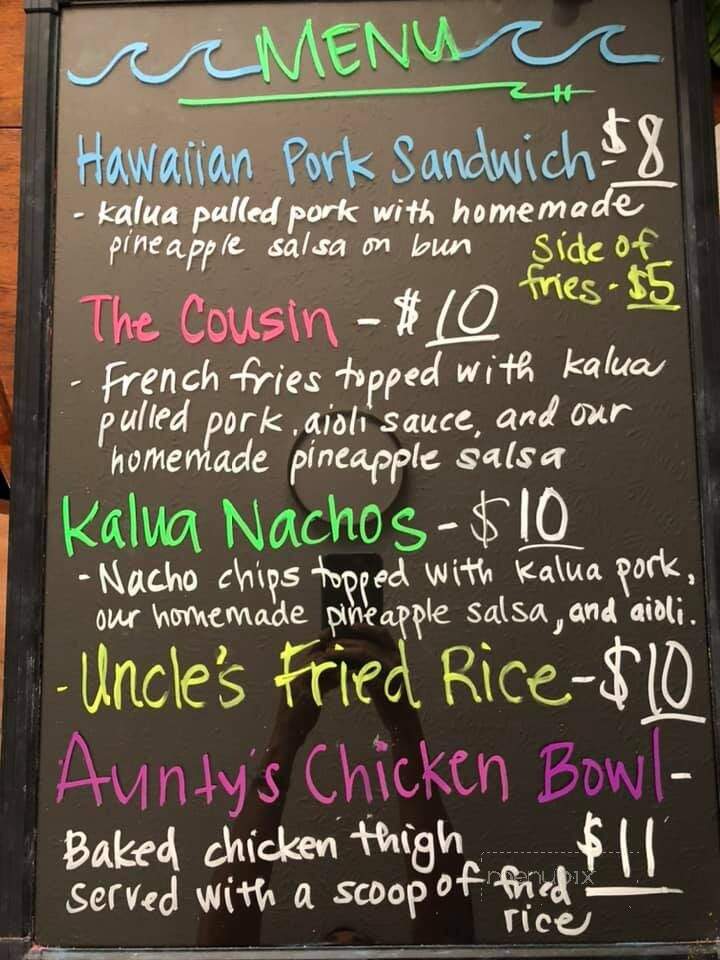 MENU
Hawaiian Pork Sandwich - $8
- Kalua pulled pork with homemade
pineapple salsa on bun
Side of
fries - $5
The Cousin - $10
- French fries topped with kalua
pulled pork, aioli sauce, and our
homemade pineapple salsa
Kalua Nachos - $10
- Nacho chips topped with Kalua pork,
our homemade pineapple salsa, and aioli.
- Uncle's Fried Rice - $10
Aunty's Chicken Bowl -
$11
Baked chicken thigh
served with a scoop of fried
rice
menupix